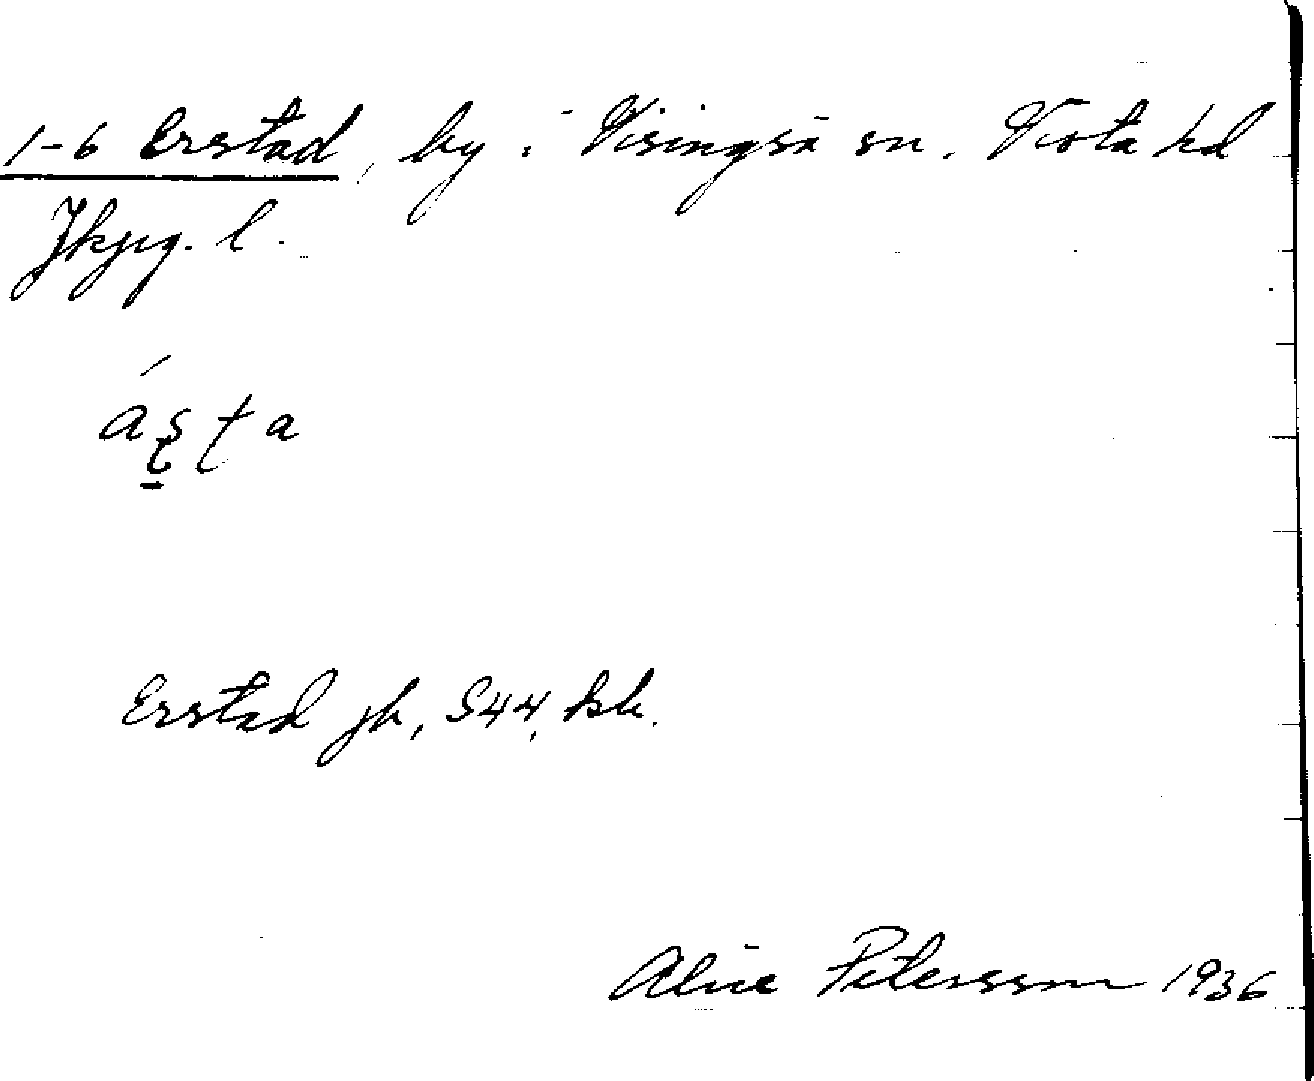 1-6 Erstad, by i Visingsö sn. Vista hd
Jkpg. l.
Erstad jk, S44, bk.
Alice Petersson 1936